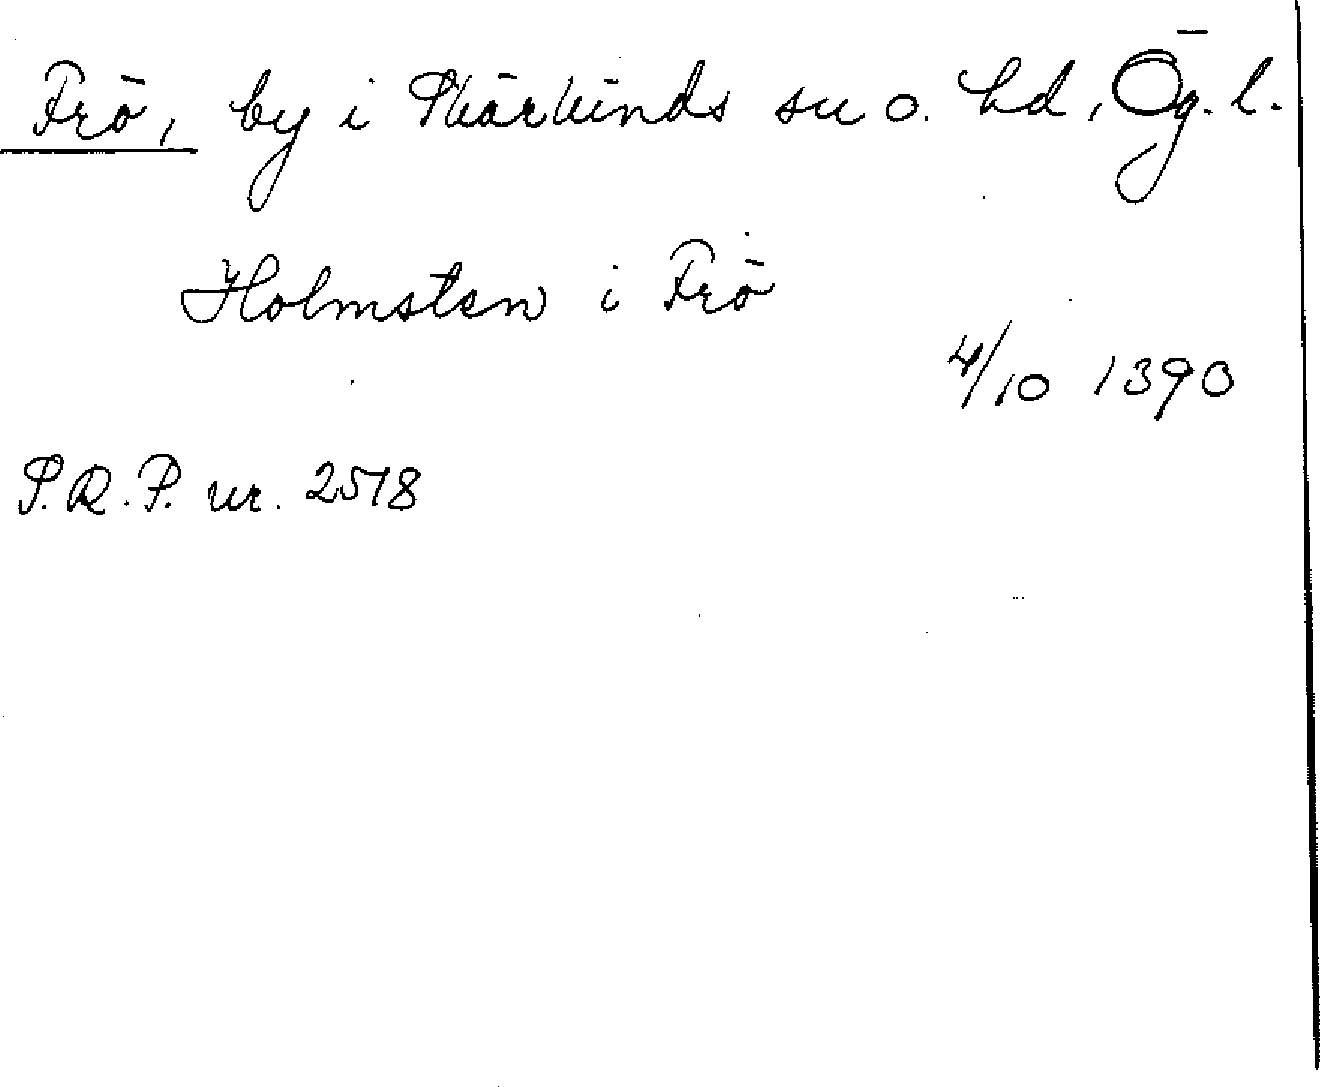 Frö, by i Skärkinds sn o. hd, Ög. l.
Holmsten i Frö
4/10 1390
S.R.P. nr. 2578